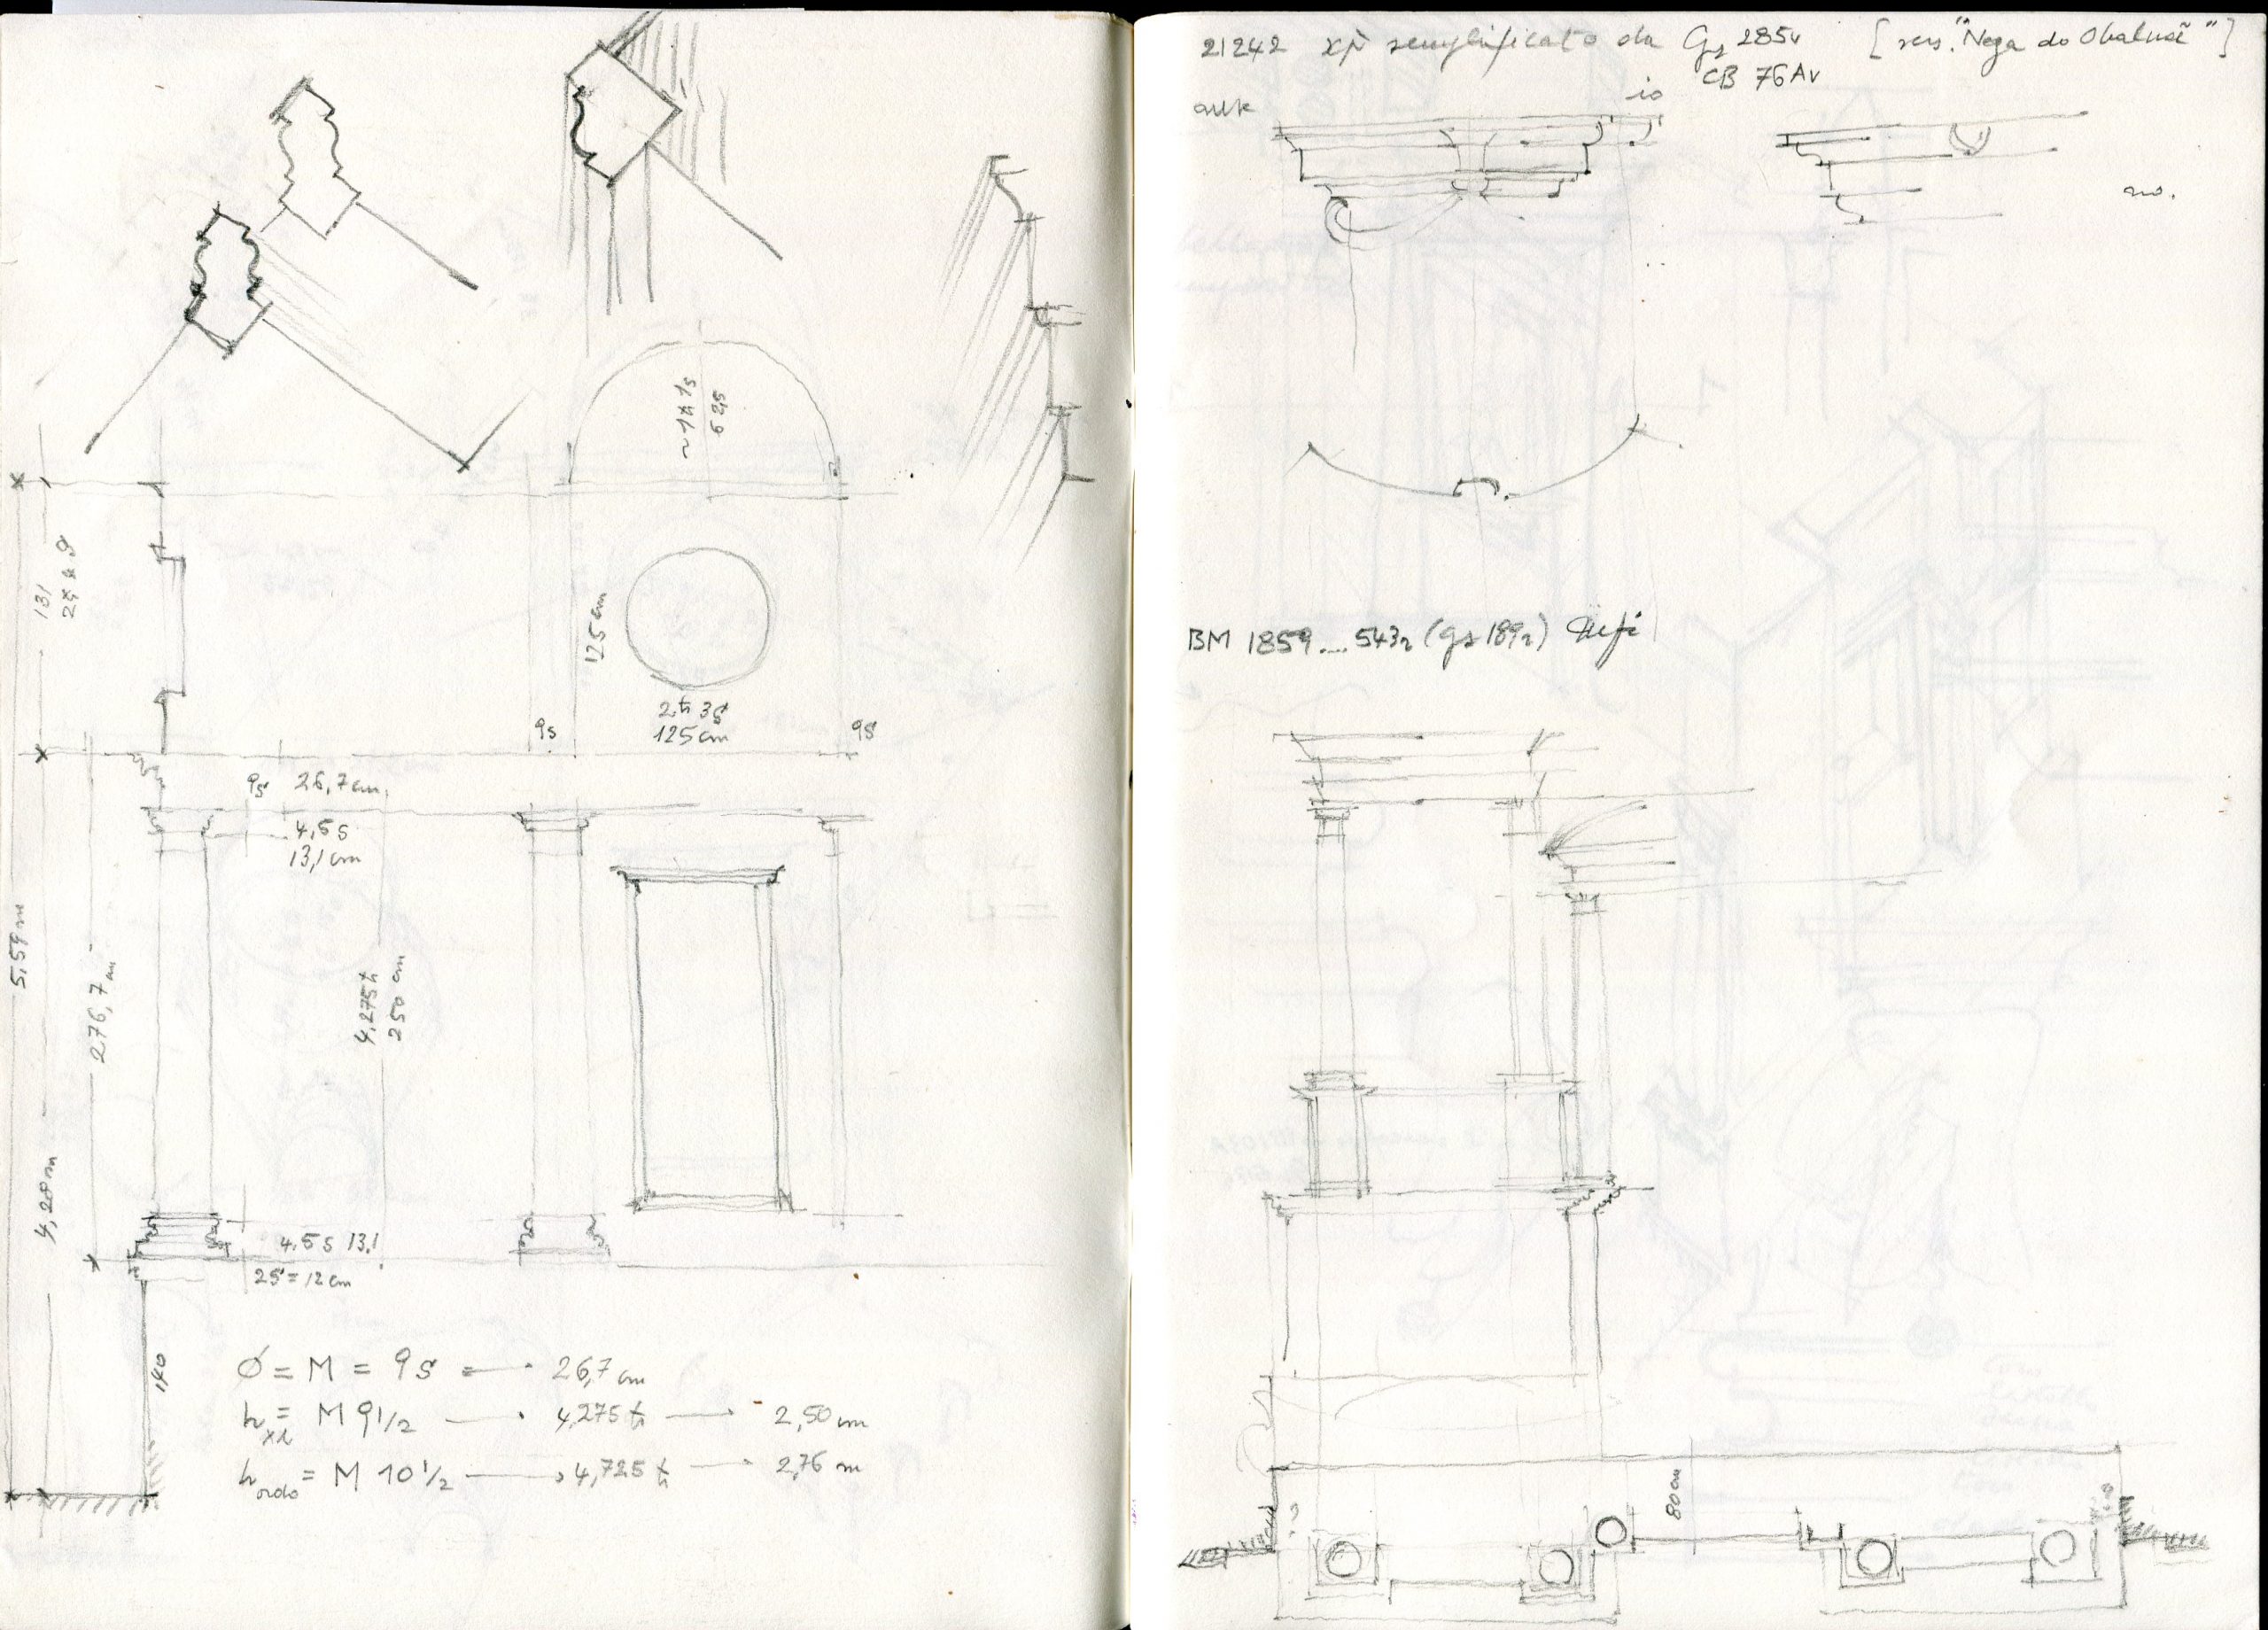 ~1 ħ 1/5
62,5
131
125 cm
2 ħ 3s
125 cm
9s
9s
9s 26,7 cm.
4,5 s
13,1 cm
5,59 m
276,7 m
4,275 ħ
250 cm
4,28 m
4.5 s 13.1
2s = 12 cm
140
Ø = M = 9s = — 26,7 cm
= M 9 1/2 — 4,275 ħ — 2,50 m
h ordo = M 10 1/2 — 4,725 ħ — 2,76 m
21242 semplificato da Gs 285v ["Nega do Obaluaê"]
CB 76Av
io
no.
BM 1859.... 543r (gs 189r)
80 cm